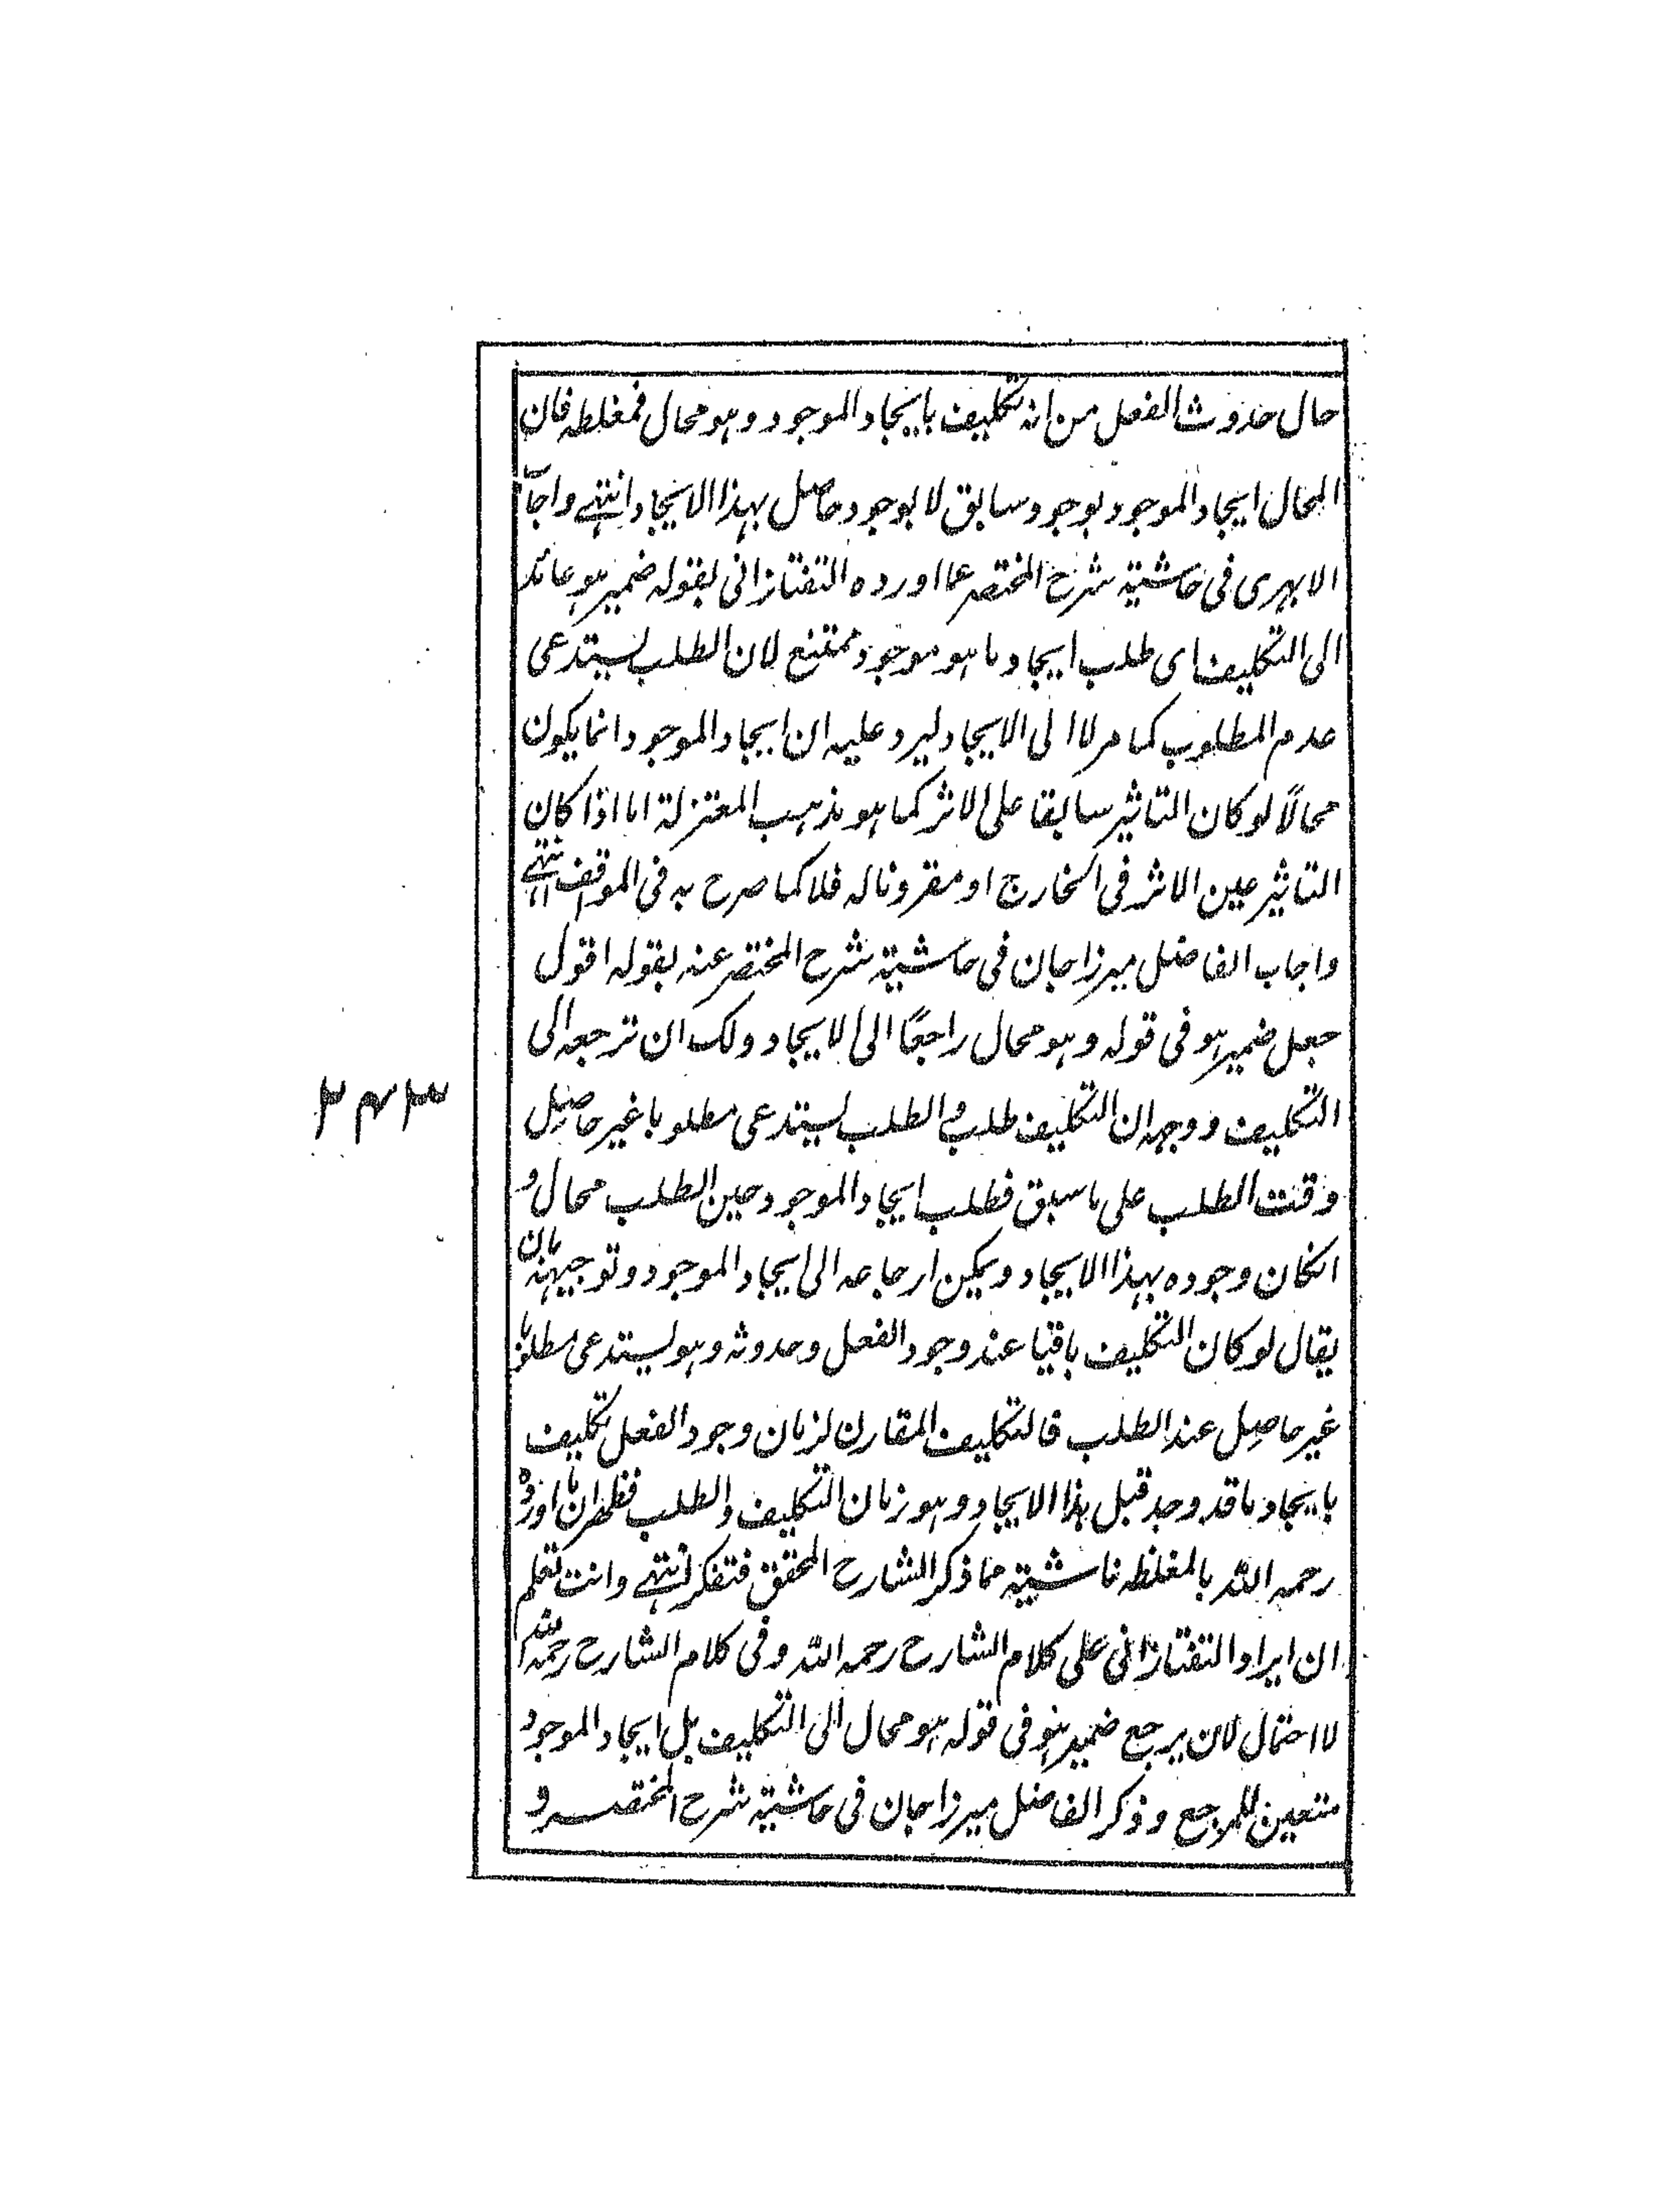 حال حدوث الفعل من انه تكليف بايجاد الموجود وهو محال فمغلطه فان
المحال ايجاد الموجود بوجود سابق لا بوجود حاصل بهذا الايجاد انتهى واجاب
الابهرى فى حاشية شرح المختصر عما اورده التفتازانى بقوله ضمير هو عائد
الى التكليف اى طلب ايجاد ما هو موجود ممتنع لان الطلب يستدعى
عدم المطلوب كما مر لا الى الايجاد ليرد عليه ان ايجاد الموجود انما يكون
محالاً لو كان التاثير سابقا على الاثر كما هو مذهب المعتزلة اما اذا كان
التاثير عين الاثر فى الخارج او مقرونا له فلا كما صرح به فى المواقف انتهى
واجاب الفاضل ميرزاجان فى حاشية شرح المختصر عنه بقوله اقول
جعل ضمير هو فى قوله وهو محال راجعًا الى الايجاد ولك ان ترجعه الى
التكليف ووجهه ان التكليف طلب والطلب يستدعى مطلوبا غير حاصل
وقت الطلب على ما سبق فطلب ايجاد الموجود حين الطلب محال و
انكان وجوده بهذا الايجاد ويمكن ارجاعه الى ايجاد الموجود وتوجيهه بان
يقال لو كان التكليف باقيا عند وجود الفعل وحدوثه وهو يستدعى مطلوبا
غير حاصل عند الطلب فالتكليف المقارن لزمان وجود الفعل تكليف
بايجاد ما قد وجد قبل هذا الايجاد وهو زمان التكليف والطلب فظهر ان ما اورده
رحمه الله بالمغلطه ناشية مما ذكر الشارح المحقق فتفكر انتهى وانت تعلم
ان ايراد التفتازانى على كلام الشارح رحمه الله وفى كلام الشارح رحمه الله
لا احتمال لان يرجع ضمير هو فى قوله هو محال الى التكليف بل ايجاد الموجود
متعين للمرجع وذكر الفاضل ميرزاجان فى حاشية شرح المختصر و
٢٤٣